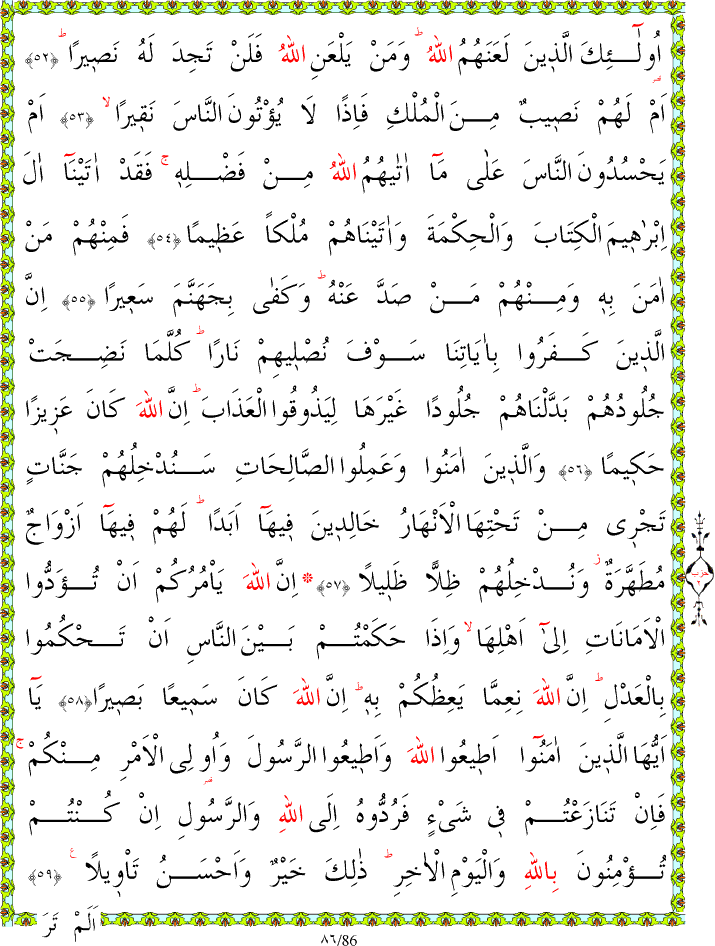 اُو۬لٰٓئِكَ الَّذ۪ينَ لَعَنَهُمُ اللّٰهُ ؕ وَمَنْ يَلْعَنِ اللّٰهُ فَلَنْ تَجِدَ لَهُ نَص۪يرًا ؕ ﴿٥٢﴾
اَمْ لَهُمْ نَص۪يبٌ مِنَ الْمُلْكِ فَاِذًا لَا يُؤْتُونَ النَّاسَ نَق۪يرًا ۙ ﴿٥٣﴾ اَمْ
يَحْسُدُونَ النَّاسَ عَلٰى مَٓا اٰتٰيهُمُ اللّٰهُ مِنْ فَضْلِه۪ ۚ فَقَدْ اٰتَيْنَٓا اٰلَ
اِبْرٰه۪يمَ الْكِتَابَ وَالْحِكْمَةَ وَاٰتَيْنَاهُمْ مُلْكاً عَظ۪يمًا ﴿٥٤﴾ فَمِنْهُمْ مَنْ
اٰمَنَ بِه۪ وَمِنْهُمْ مَنْ صَدَّ عَنْهُ ؕ وَكَفٰى بِجَهَنَّمَ سَع۪يرًا ﴿٥٥﴾ اِنَّ
الَّذ۪ينَ كَفَرُوا بِاٰيَاتِنَا سَوْفَ نُصْل۪يهِمْ نَارًا ؕ كُلَّمَا نَضِجَتْ
جُلُودُهُمْ بَدَّلْنَاهُمْ جُلُودًا غَيْرَهَا لِيَذُوقُوا الْعَذَابَ ؕ اِنَّ اللّٰهَ كَانَ عَز۪يزًا
حَك۪يمًا ﴿٥٦﴾ وَالَّذ۪ينَ اٰمَنُوا وَعَمِلُوا الصَّالِحَاتِ سَنُدْخِلُهُمْ جَنَّاتٍ
تَجْر۪ى مِنْ تَحْتِهَا الْاَنْهَارُ خَالِد۪ينَ ف۪يهَٓا اَبَدًا ؕ لَهُمْ ف۪يهَٓا اَزْوَاجٌ
مُطَهَّرَةٌ ۘ وَنُدْخِلُهُمْ ظِلًّا ظَل۪يلًا ﴿٥٧﴾ * اِنَّ اللّٰهَ يَاْمُرُكُمْ اَنْ تُؤَدُّوا
الْاَمَانَاتِ اِلٰٓى اَهْلِهَا ۙ وَاِذَا حَكَمْتُمْ بَيْنَ النَّاسِ اَنْ تَحْكُمُوا
بِالْعَدْلِ ؕ اِنَّ اللّٰهَ نِعِمَّا يَعِظُكُمْ بِه۪ ؕ اِنَّ اللّٰهَ كَانَ سَم۪يعًا بَص۪يرًا ﴿٥٨﴾ يَٓا
اَيُّهَا الَّذ۪ينَ اٰمَنُٓوا اَط۪يعُوا اللّٰهَ وَاَط۪يعُوا الرَّسُولَ وَاُو۬لِى الْاَمْرِ مِنْكُمْ ۚ
فَاِنْ تَنَازَعْتُمْ ف۪ى شَىْءٍ فَرُدُّوهُ اِلَى اللّٰهِ وَالرَّسُولِ اِنْ كُنْتُمْ
تُؤْمِنُونَ بِاللّٰهِ وَالْيَوْمِ الْاٰخِرِ ؕ ذٰلِكَ خَيْرٌ وَاَحْسَنُ تَاْو۪يلًا ۟ ﴿٥٩﴾
اَلَمْ تَرَ
٨٦/86
حزب